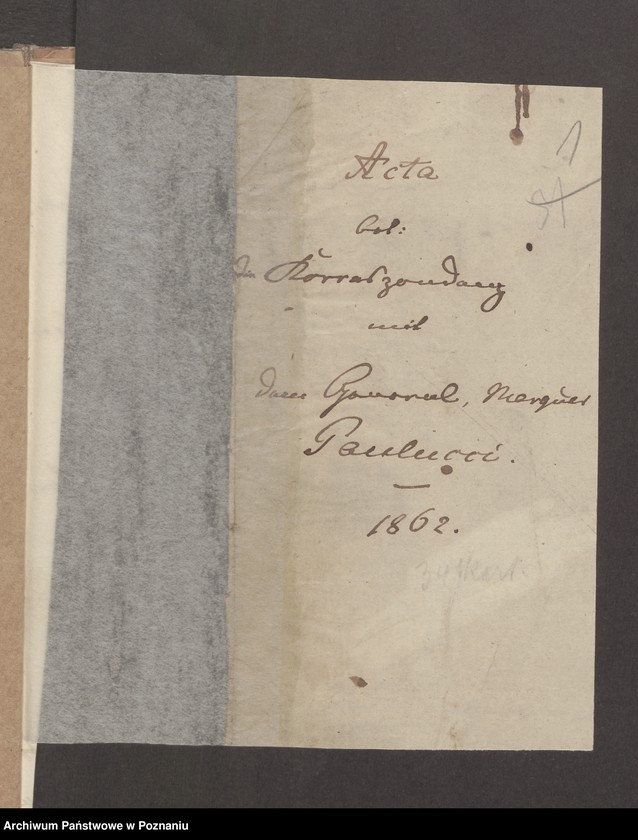 Acta
bet:
die Korrespondenz
mit
dem General, Marquis
Paulucci.
1862.
1
34 Kart.
Archiwum Państwowe w Poznaniu